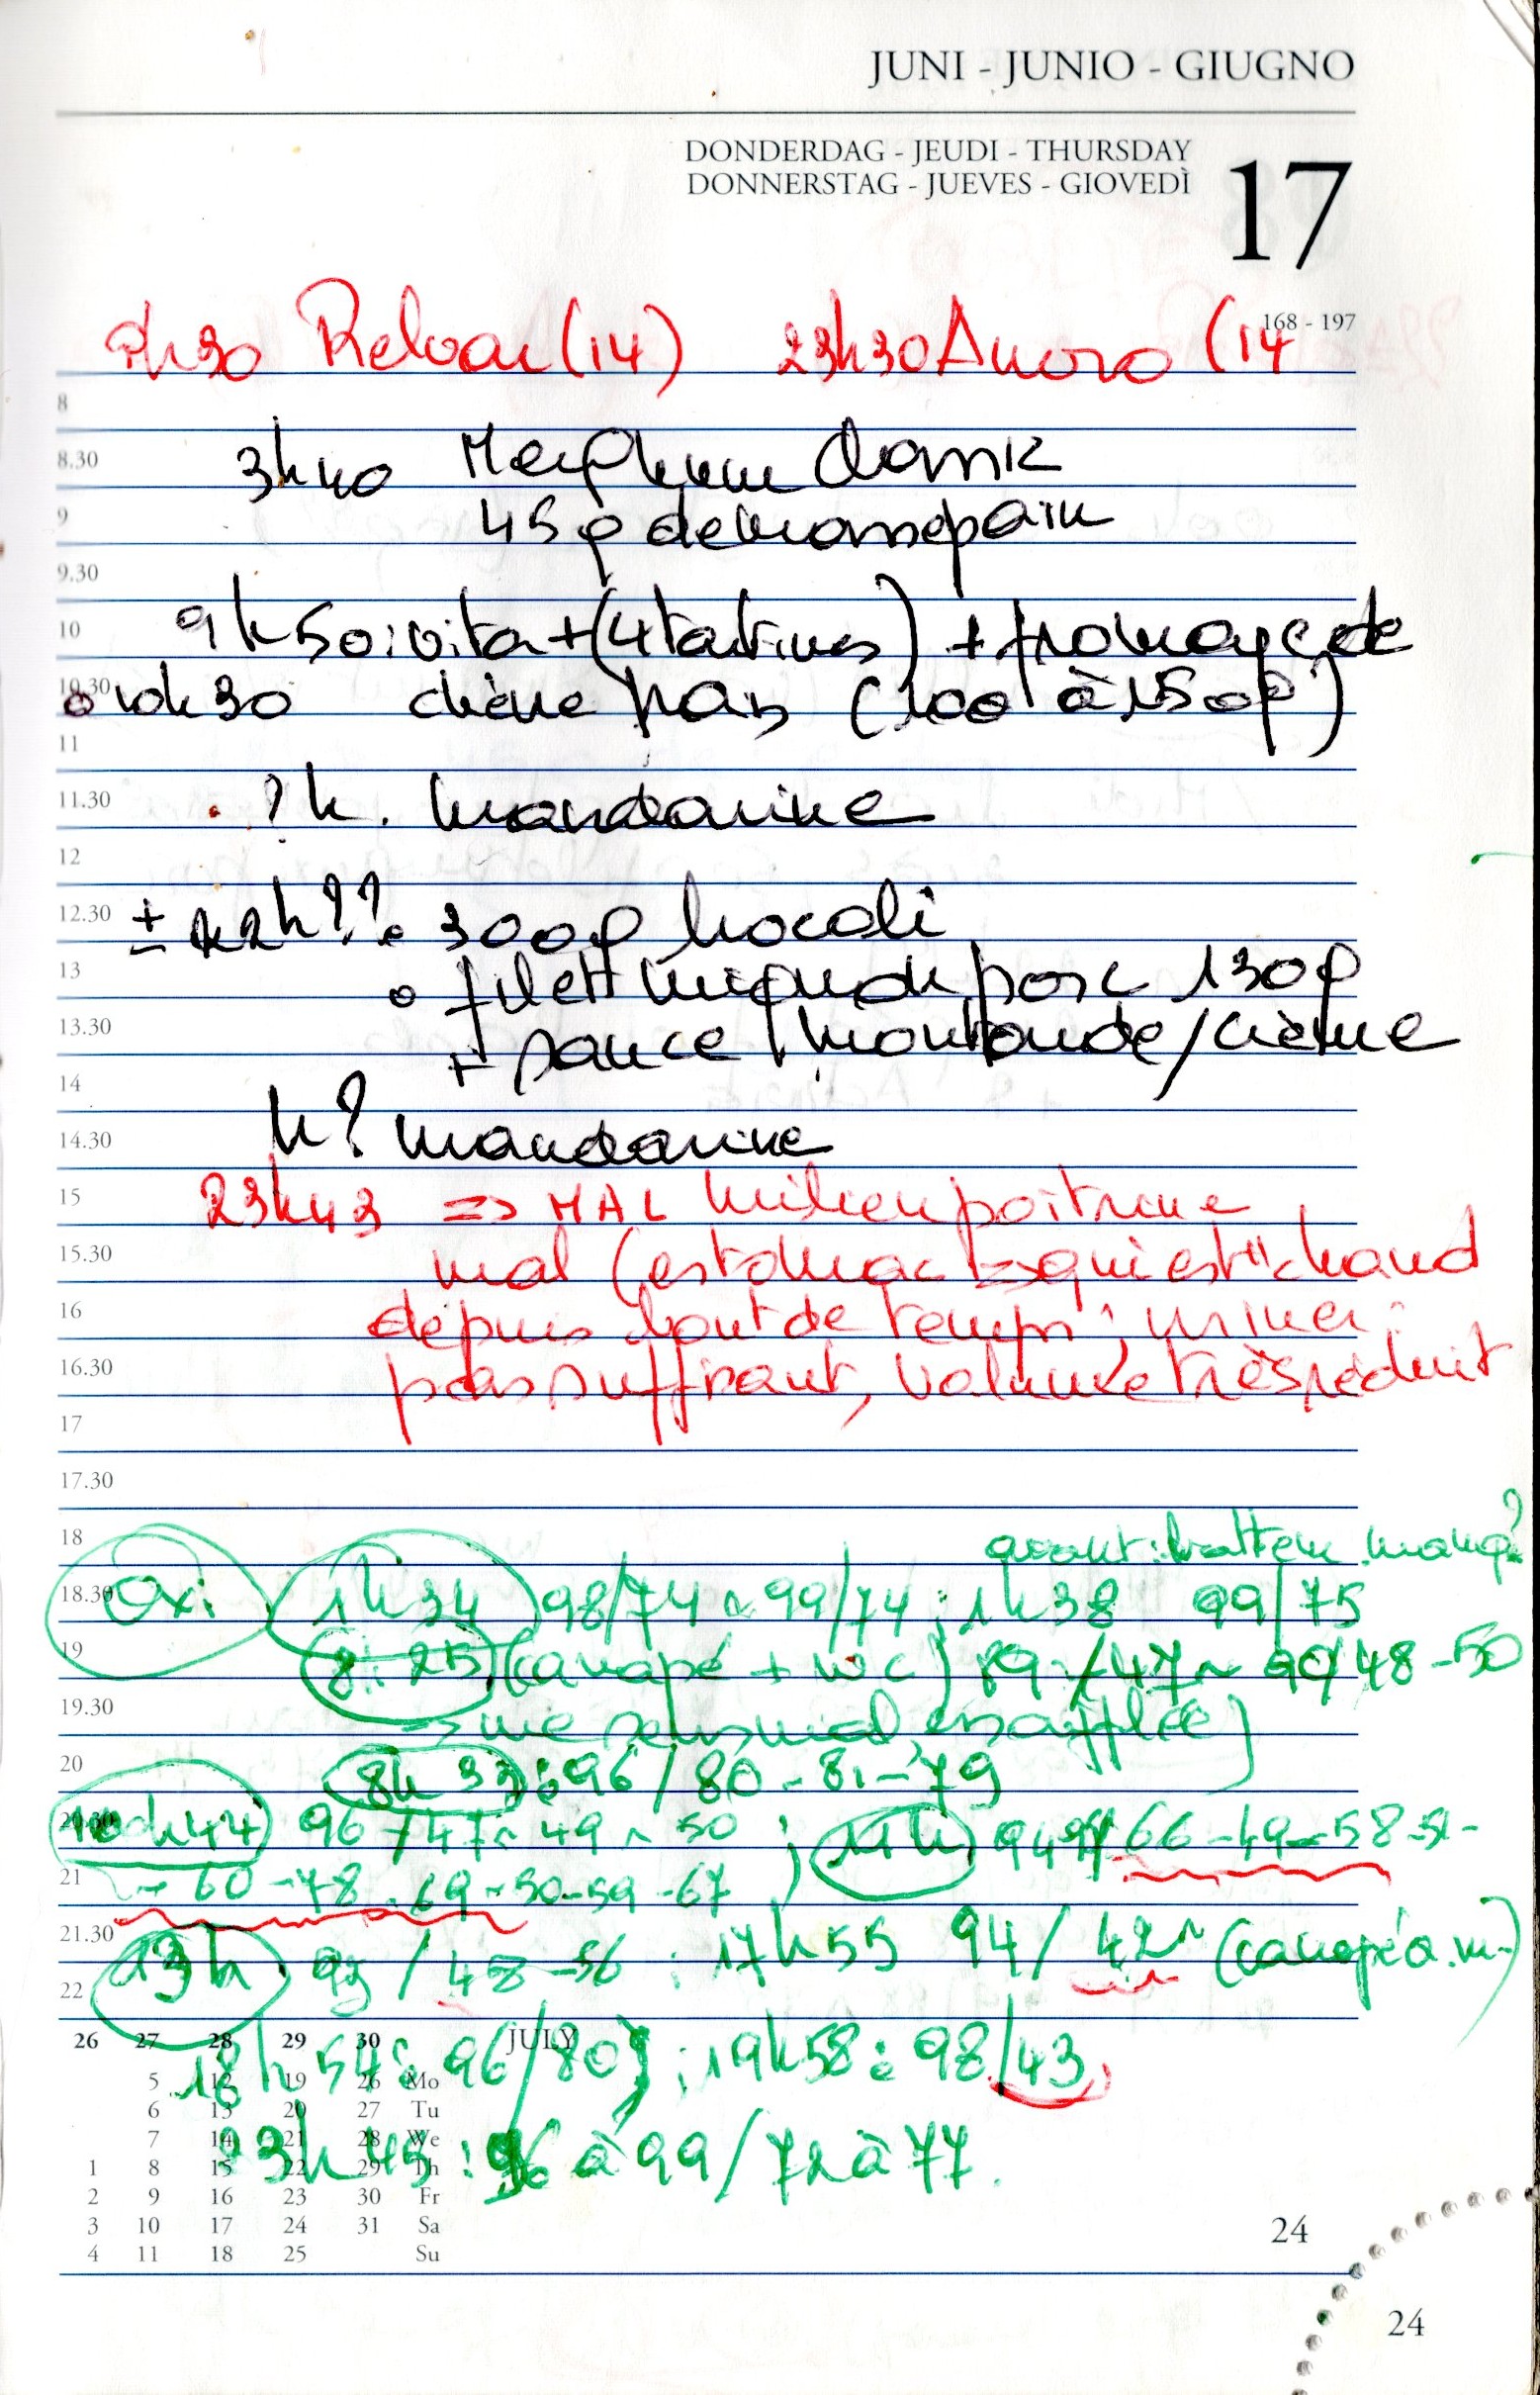 JUNI - JUNIO - GIUGNO
DONDERDAG - JEUDI - THURSDAY
DONNERSTAG - JUEVES - GIOVEDÌ
17
168 - 197
Relvar (14) 23h30 Anoro (14
8
8.30 3h40
9 45g de massepain
9.30
10 9h50: vita + (4 tartines) + fromage de
10.30 10h30 chèvre frais (100 à 150g)
11
11.30 ?h. mandarine
12
12.30 ± 22h??. 300g brocoli
13 o filett mignon de porc 130g
13.30 + sauce moutarde/crème
14
14.30 h? mandarine
15 23h43 => MAL milieu poitrine
15.30 mal (estomac => qui est "chaud
16 depuis bout de temps ; uriner :
16.30 pas suffisant, volume très réduit
17
17.30
18 avant: mang?
18.30 Oxi 1h34 98/74 ~ 99/74 ; 1h38 99/75
19 8h25 (canapé + wc) 89 /47 ~ 90/48-50
19.30 => me sens mal, essoufflée)
20 8h33 : 96 / 80 - 81 - 79
20.30 10h44 96 /47 ~ 49 ~ 50 ; 11h 94 / 66-49-58-51-
21 60-78-69-50-59-67
21.30 13h 93 / 48-56 ; 17h55 94 / 42 (canapé a.m.)
22
26 27 28 29 30 JULY
18h54 : 96/80 ; 19h58 : 98/43
5 12 19 26 Mo
6 13 20 27 Tu
7 14 21 28 We
23h45 : 96 à 99/72 à 77
1 8 15 22 29 Th
2 9 16 23 30 Fr
3 10 17 24 31 Sa
4 11 18 25 Su
24
24